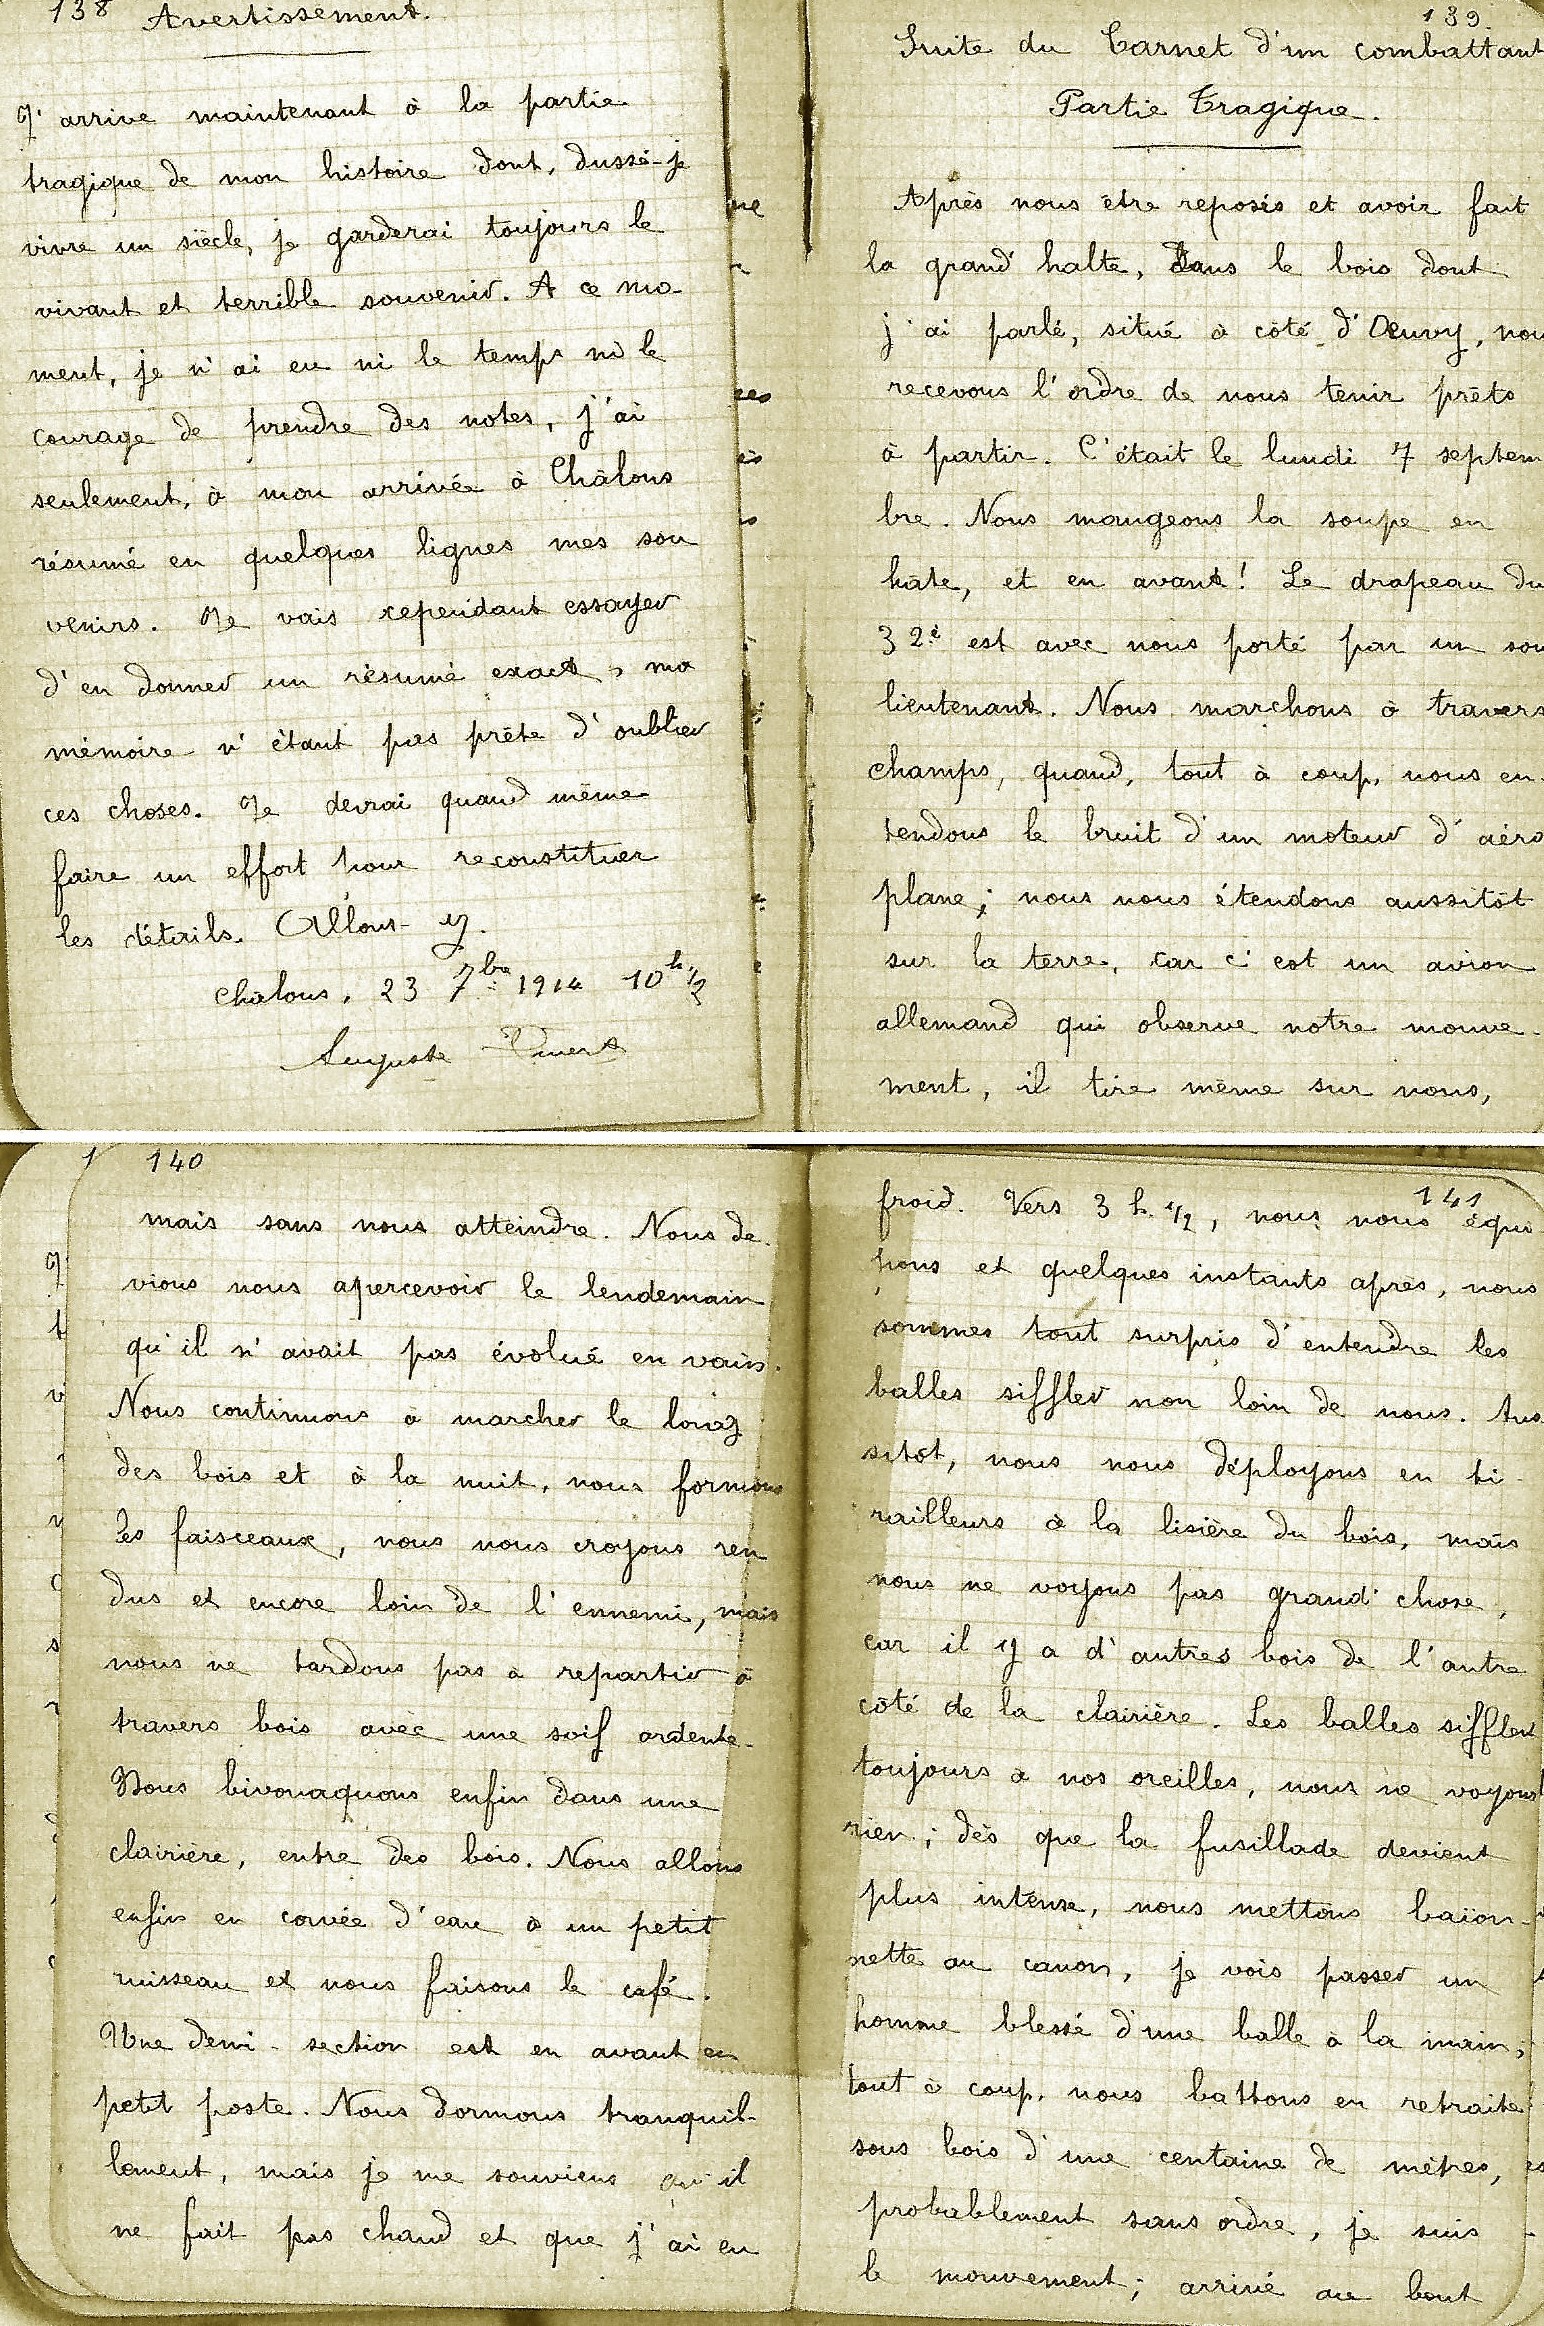 138 Avertissement.
J'arrive maintenant à la partie
tragique de mon histoire dont, dussé-je
vivre un siècle, je garderai toujours le
vivant et terrible souvenir. A ce mo-
ment, je n'ai eu ni le temps ni le
courage de prendre des notes, j'ai
seulement, à mon arrivée à Châlons
résumé en quelques lignes mes sou
venirs. Je vais cependant essayer
d'en donner un résumé exact, ma
mémoire n'étant pas prête d'oublier
ces choses. Je devrai quand même
faire un effort pour reconstituer
les détails. Allons-y.
Châlons, 23 7bre 1914 10h 1/2
Auguste
139.
Suite du Carnet d'un combattant
Partie Tragique.
Après nous être reposés et avoir fait
la grand'halte, dans le bois dont
j'ai parlé, situé à côté d'Oeuvy, nou
recevons l'ordre de nous tenir prêts
à partir. C'était le lundi 7 septem
bre. Nous mangeons la soupe en
hâte, et en avant! Le drapeau du
32è est avec nous porté par un sou
lieutenant. Nous marchons à travers
champs, quand, tout à coup, nous en-
tendons le bruit d'un moteur d'aéro
plane; nous nous étendons aussitôt
sur la terre, car c'est un avion
allemand qui observe notre mouve-
ment, il tire même sur nous,
140
mais sans nous atteindre. Nous de-
vions nous apercevoir le lendemain
qu'il n'avait pas évolué en vain.
Nous continuons à marcher le long
des bois et à la nuit, nous formons
les faisceaux, nous nous croyons ren
dus et encore loin de l'ennemi, mais
nous ne tardons pas à repartir à
travers bois avec une soif ardente.
Nous bivouaquons enfin dans une
clairière, entre des bois. Nous allons
enfin en corvée d'eau à un petit
ruisseau et nous faisons le café.
Une demi-section est en avant en
petit poste. Nous dormons tranquil-
lement, mais je me souviens qu'il
ne fait pas chaud et que j'ai eu
141
froid. Vers 3 h. 1/2, nous nous équi
pons et quelques instants après, nous
sommes tout surpris d'entendre les
balles siffler non loin de nous. Aus
sitôt, nous nous déployons en ti-
railleurs à la lisière du bois, mais
nous ne voyons pas grand'chose,
car il y a d'autres bois de l'autre
côté de la clairière. Les balles sifflent
toujours à nos oreilles, nous ne voyons
rien; dès que la fusillade devient
plus intense, nous mettons baïon-
nette au canon, je vois passer un
homme blessé d'une balle à la main;
tout à coup, nous battons en retraite
sous bois d'une centaine de mètres,
probablement sans ordre, je suis
le mouvement; arrivé au bout